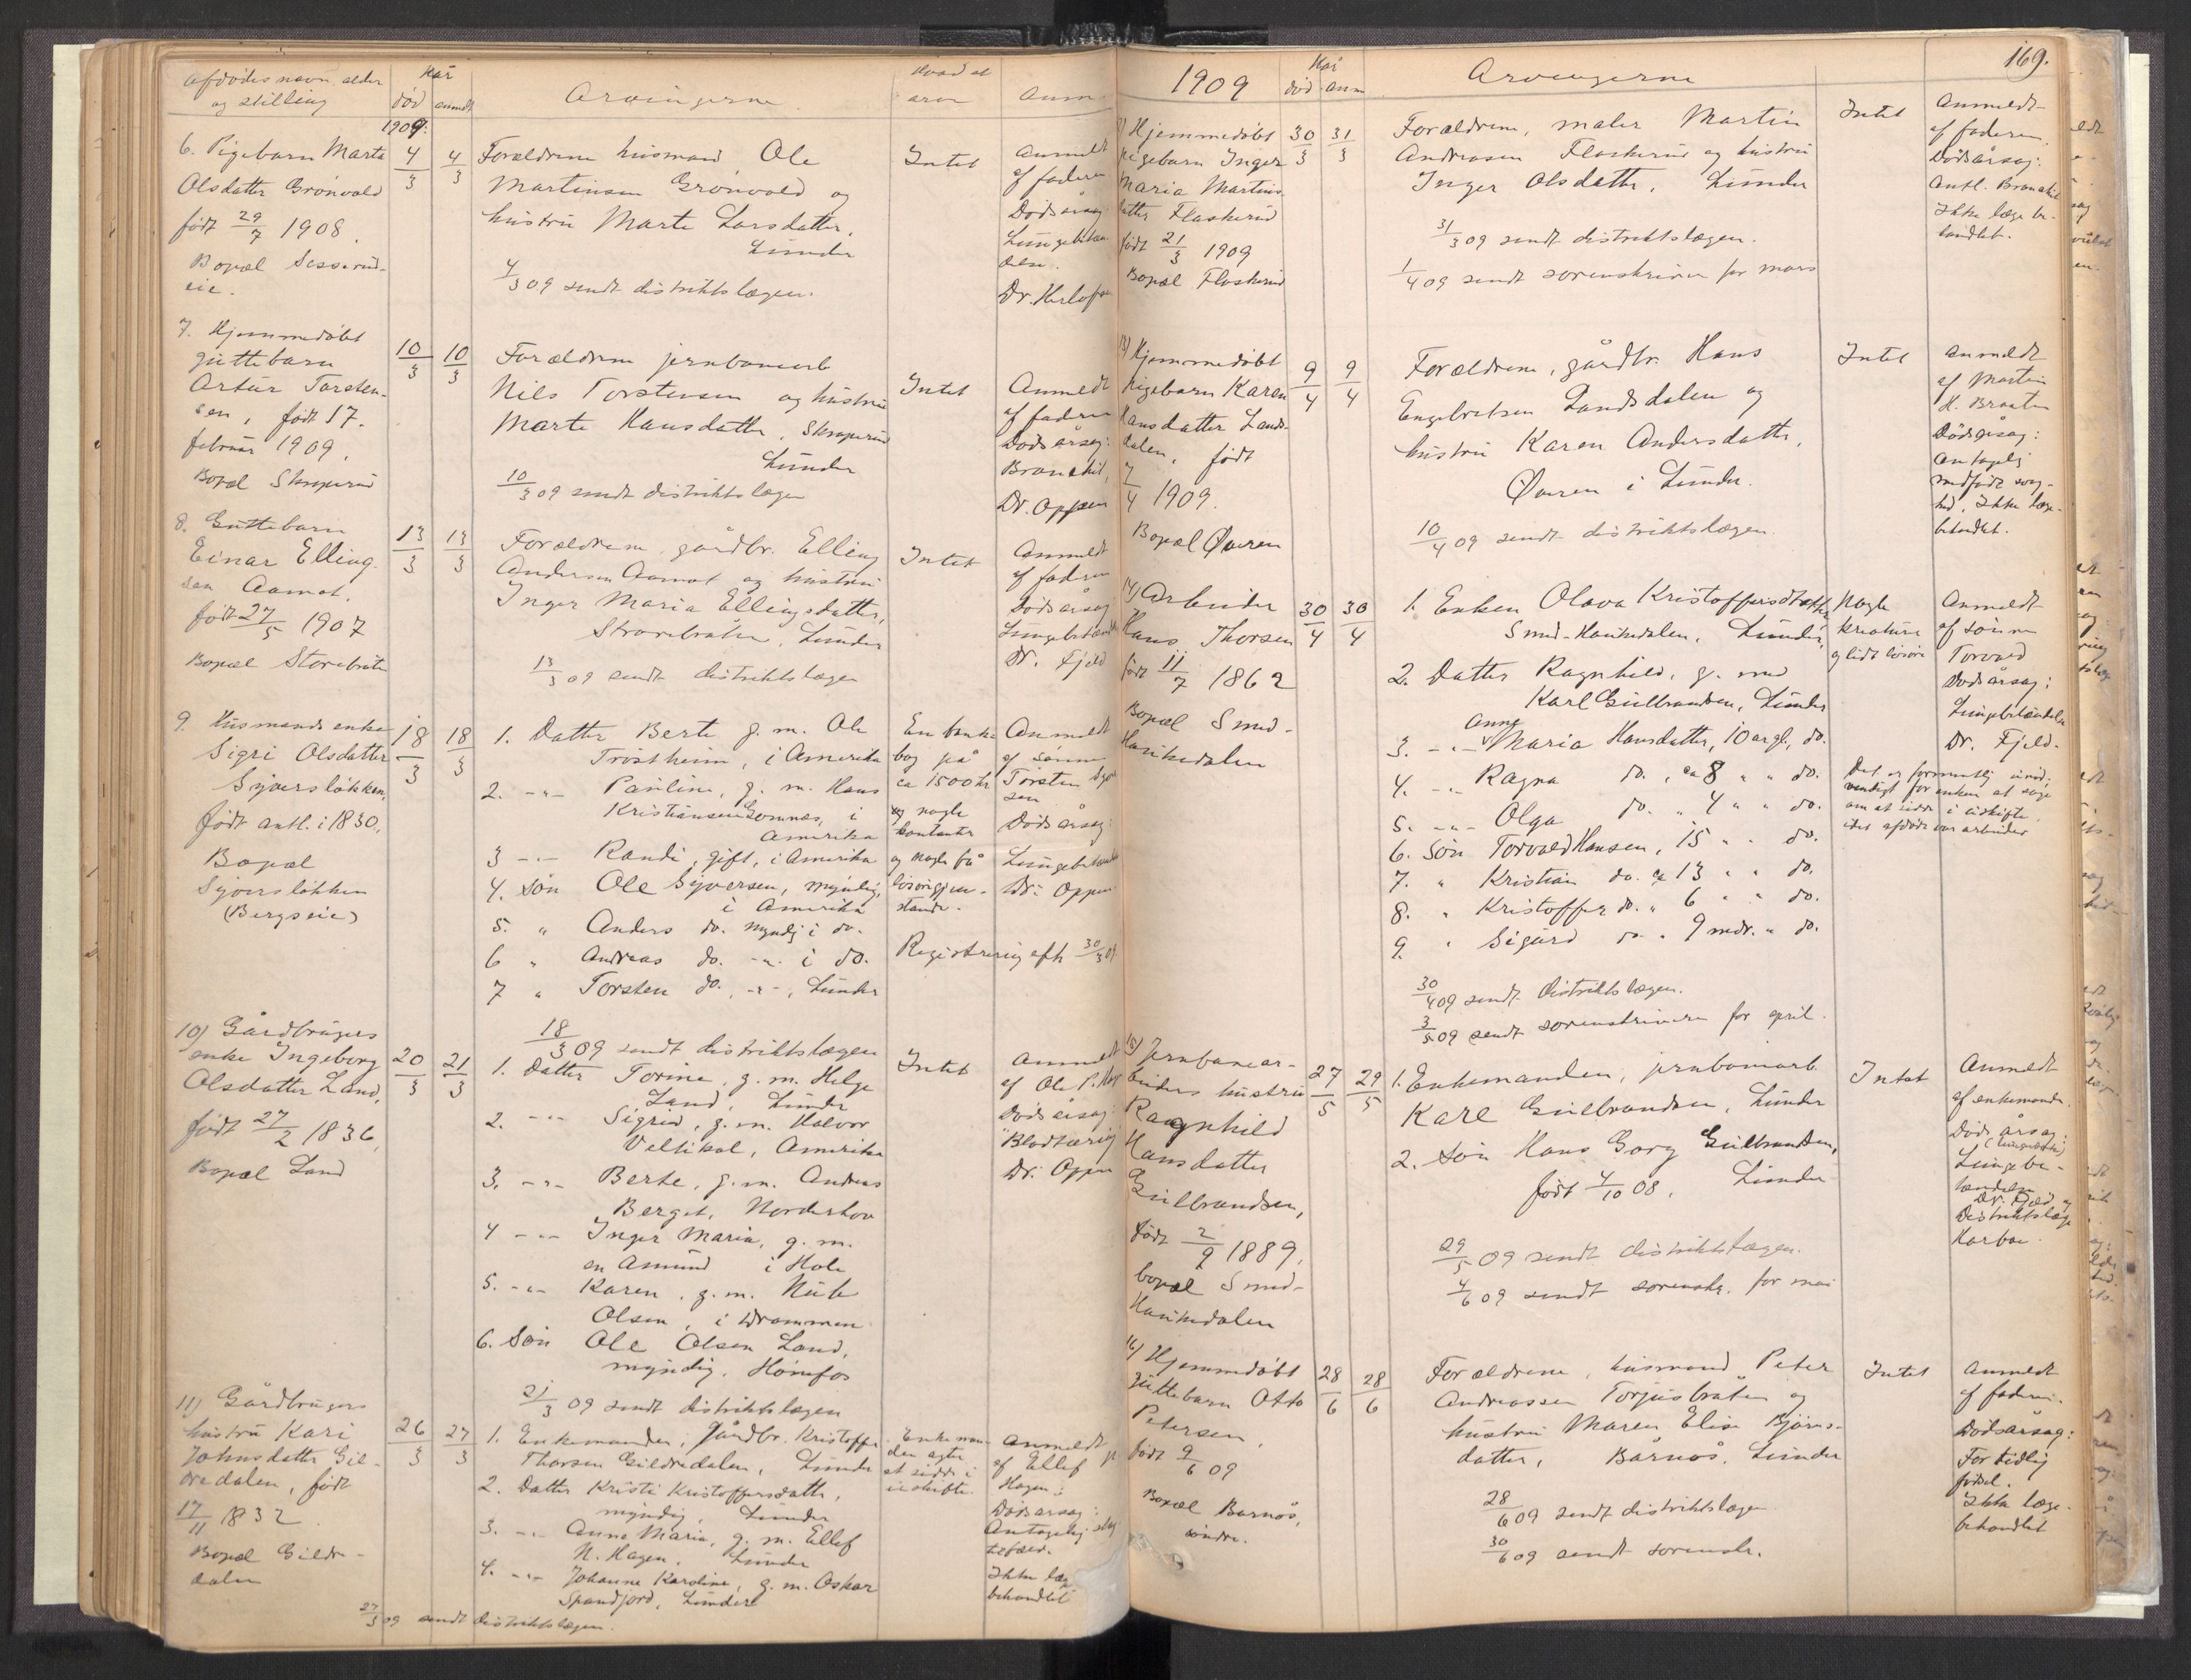 Afdødes navn, alder
og stilling
Når
død
anmeldt
Arvingerne.
Hvad at
arve
Anm
1909:
6. Pigebarn Marte
Olsdatter Grönvold
født 29/7 1908.
Bopæl
eie.
4/3
4/3
Forældrene husmand Ole
Martinsen Grönvold og
hustru Marte Larsdatter,
Lunder
4/3 09 sendt distriktslægen.
Intet
Anmeldt
af faderen
Dødsårsag:
Lungebetæn-
delse.
Dr.
7. Hjemmedøbt
guttebarn
Artur Torsten-
sen, født 17.
februar 1909.
Bopæl Skaperud
10/3
10/3
Forældrene jernbanearb
Nils Torstensen og hustru
Marte Hansdatter, Skaperud
Lunder
10/3 09 sendt distriktslægen
Intet
Anmeldt
af faderen
Dødsårsag:
Bronchit,
Dr. Oppen
8. Guttebarn
Einar Elling-
sen Aamot,
født 27/5 1907
Bopæl Storebråten
13/3
13/3
Forældrene, gårdbr. Elling
Andersen Aamot og hustru
Inger Maria Ellingsdatter,
Storebråten, Lunder
13/3 09 sendt distriktslægen
Intet
Anmeldt
af faderen
Dødsårsag
Lungebetændelse
Dr. Fjeld
9. Husmandsenke
Sigri Olsdatter
Syversløkken,
født antl. i 1830.
Bopæl
Syversløkken
(Bergseie)
18/3
18/3
1. Datter Berte g. m. Ole
Tröstheim, i Amerika
2. -"- Pauline, g. m. Hans
Kristiansen Somnes, i
Amerika
3 -"- Randi, gift, i Amerika
4. Søn Ole Syversen, myndig,
i Amerika
5. " Anders do. myndig i do.
6 " Andreas do. -"- i do.
7 " Torsten do. -"-, Lunder
18/3 09 sendt distriktslægen
En bankbog
på
ca 1500 kr
og nogle
kontanter
og nogle få
løsøregjen-
stande.
Registrering afh. 30/3 09
Anmeldt
af sønnen
Torsten Syver
sen
Dødsårsag:
Lungebetændelse
Dr. Oppen
10) Gårdbrugers
enke Ingeborg
Olsdatter Land,
født 27/2 1836,
Bopæl Land
20/3
21/3
1. Datter Torine, g. m. Helge
Land, Lunder
2. -"- Sigrid, g. m. Halvor
Veltikol, Amerika
3. -"- Berte, g. m. Andreas
Berget, Norderhov
4 -"- Inger Maria, g. m.
en Amund i Hole
5. -"- Karen, g. m. Nub
Olsen, i Drammen
6. Søn Ole Olsen Land,
myndig, Hønefos
21/3 09 sendt distriktslægen
Intet
Anmeldt
af Ole P.
Dødsårsag:
Dr. Oppen
11) Gårdbrugers
hustru Kari
Johnsdatter Gil-
dredalen, født
17/11 1832.
Bopæl Gildre-
dalen
26/3
27/3
1. Enkemanden, gårdbr. Kristoffer
Thorsen Gildredalen, Lunder
2. Datter Kristi Kristoffersdatter,
myndig, Lunder
3. -"- Anne Maria, g. m. Ellef
N. Hagen, Lunder
4. -"- Johanne Karoline, g. m. Oskar
Spandjord, Lunder
27/3 09 sendt distriktslægen.
Enkeman-
den agter
at sidde i
uskifte.
Anmeldt
af Ellef
Hagen:
Dødsårsag:
Antagelig slag
tilfælde.
Ikke læge
behandlet
1909
Når
død
anm
Arvingerne
169.
12) Hjemmedøbt
pigebarn Inger
Maria Martins-
datter Flaskerud
født 21/3 1909
Bopæl Flaskerud
30/3
31/3
Forældrene, maler Martin
Andreasen Flaskerud og hustru
Inger Olsdatter, Lunder
31/3 09 sendt distriktslægen.
1/4 09 sendt sorenskriveren for mars
Intet
Anmeldt
af faderen
Dødsårsag:
Antl. Bronchit
Ikke læge be-
handlet.
13) Hjemmedøbt
pigebarn Karen
Hansdatter Lands-
dalen, født
7/4 1909.
Bopæl Øveren
9/4
9/4
Forældrene, gårdbr. Hans
Engebretsen Landsdalen og
hustru Karen Andersdatter,
Øveren i Lunder.
10/4 09 sendt distriktslægen.
Intet
Anmeldt
af Martin
H. Braaten
Dödsårsag:
antagelig
medfødt svag-
hed. Ikke læge-
behandlet.
14) Arbeider
Hans Thorsen
født 11/7 1862
Bopæl Smed-
Haukedalen
30/4
30/4
1. Enken Olava Kristoffersdatter,
Smed-Haukedalen, Lunder,
2. Datter Ragnhild, g. med
Karl Gulbrandsen, Lunder
3. -"- Anne Maria Hansdatter, 10 år gl., do.
4. -"- Ragna do., ca 8 " " do.
5. -"- Olga do. " 4 " " do.
6. Søn Torvald Hansen, 15 " " do.
7. " Kristian do. ca 13 " " do.
8. " Kristoffer do. " 6 " " do.
9. " Sigurd do. " 9 mdr. " do.
30/4 09 sendt distriktslægen.
3/5 09 sendt sorenskriveren for april.
Nogle
kreaturer
og lidt løsøre
Anmeldt
af sønnen
Torvald
Dødsårsag:
Lungebetændelse
Dr. Fjeld.
Det er formentlig unød-
vendigt for enken at søge
om at sidde i uskifte,
idet afdøde var arbeider
15) Jernbanear-
beiders hustru
Ragnhild
Hansdatter
Gulbrandsen,
født 2/9 1889.
bopæl Smed-
Haukedalen
27/5
29/5
1. Enkemanden, jernbanearb.
Karl Gulbrandsen, Lunder
2. Søn Hans Gorg Gulbrandsen,
født 4/10 08, Lunder
29/5 09 sendt distriktslægen.
4/6 09 sendt sorenskr. for mai
Intet
Anmeldt
af enkemanden.
Dødsårsag:
Lungebe-
tændelse
Dr. Fjeld og
Distriktslæge
Harboe.
16) Hjemmedøbt
guttebarn Otto
Petersen,
født 9/6 09
Bopæl Barnös,
söndre.
28/6
28/6
Forældrene, husmand Peter
Andreassen Torjusbråten og
hustru Maren Elise Bjørns-
datter, Bårnös, Lunder
28/6 09 sendt distriktslægen
30/6 09 sendt sorenskr.
Intet
Anmeldt
af faderen.
Dødsårsag:
For tidlig
fødsel.
Ikke læge-
behandlet